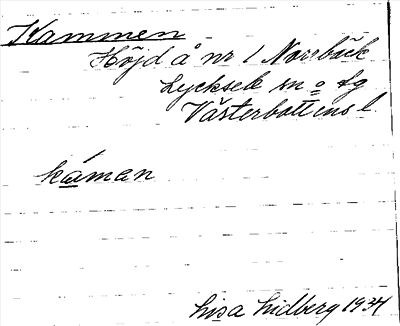 Kammen
Höjd å nr 1 Norrbäck
Lycksele sn o lg
Västerbottens l.
kámen
Lisa Lidberg 1934